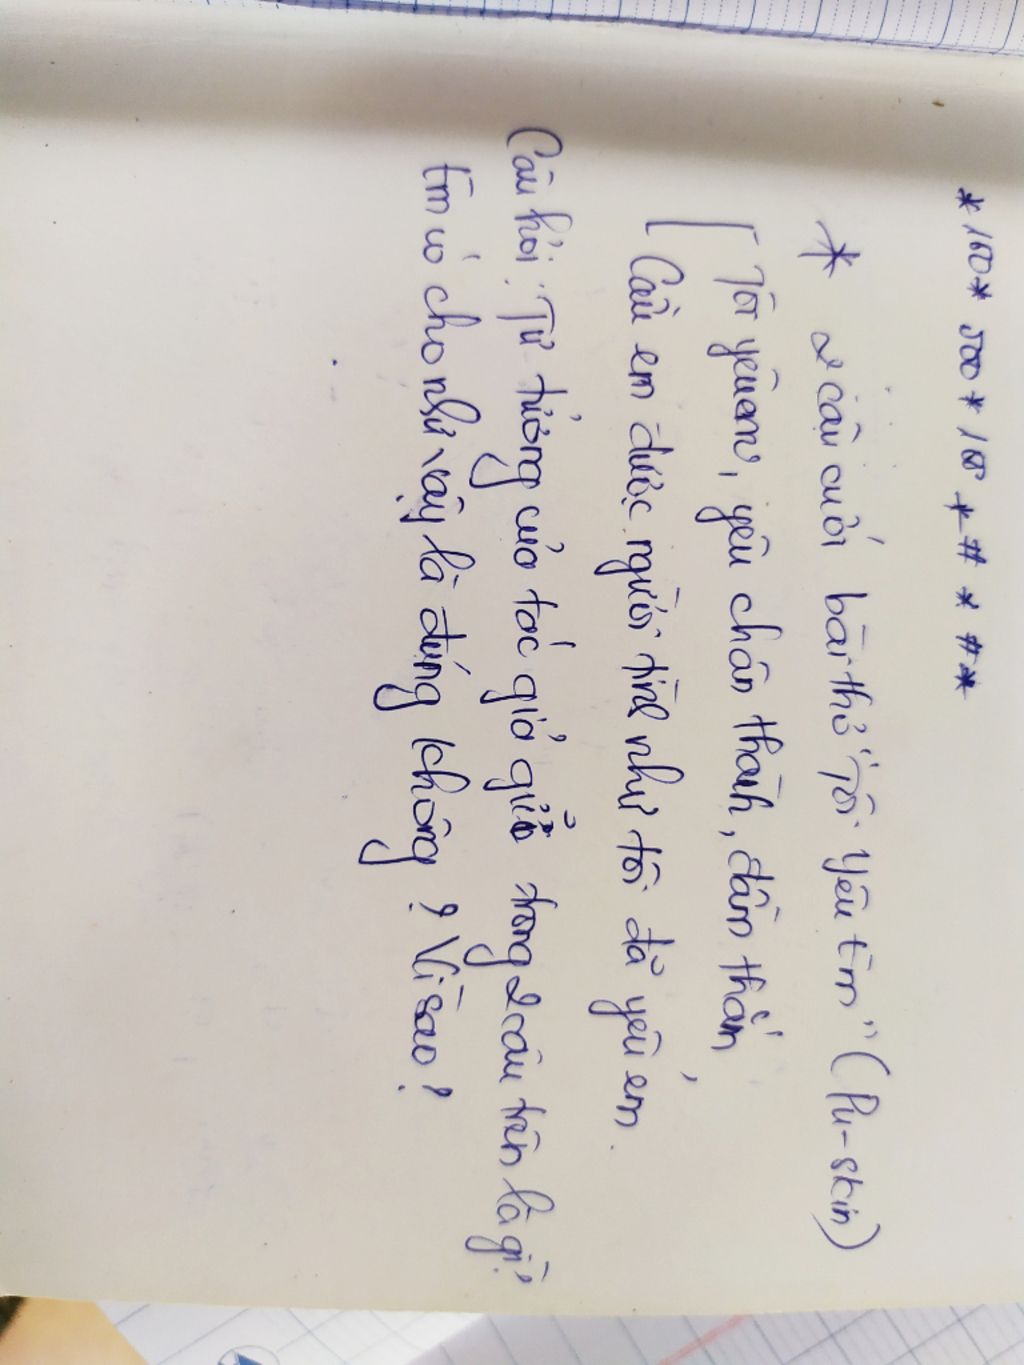 *100* 500 * 100 * # * # *
* 2 câu cuối bài thơ "Tôi yêu em" (Pu-skin)
Tôi yêu em, yêu chân thành, đằm thắm,
Cầu em được người tình như tôi đã yêu em.
Câu hỏi: Tư tưởng của tác giả gửi trong 2 câu trên là gì?
Em có cho như vậy là đúng không? Vì sao?